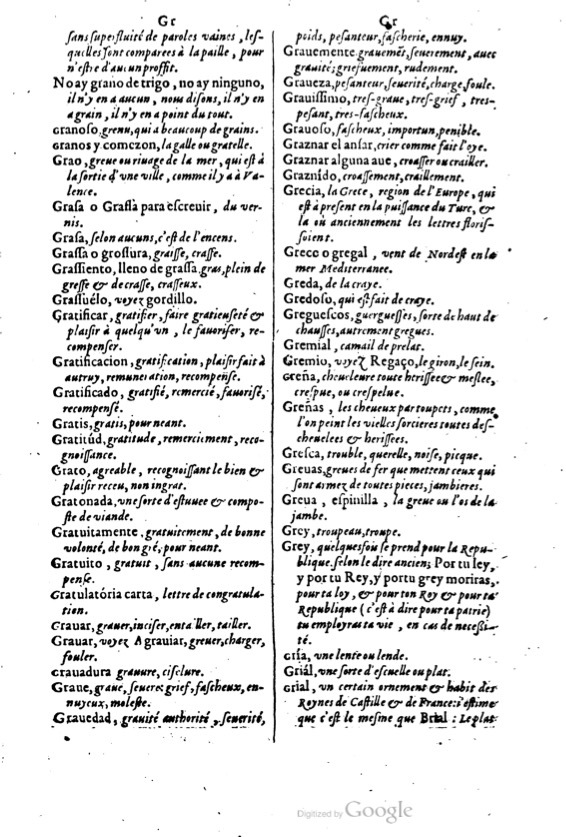 Gr
sans superfluité de paroles vaines, les-
quelles sont comparees à la paille, pour
n'estre d'aucun proffit.
No ay grano de trigo, no ay ninguno,
il n'y en a aucun, nous disons, il n'y en
a grain, il n'y en a point du tout.
Granoso, grenu, qui a beaucoup de grains.
Granos y comezon, la galle ou gratelle.
Grao, greue ou riuage de la mer, qui est à
la sortie d'une ville, comme il y a à Va-
lence.
Grasa o Grassa para escreuir, du ver-
nis.
Grasa, selon aucuns, c'est de l'encens.
Grassa o grossura, graisse, crasse.
Grassiento, lleno de grassa, gras, plein de
gresse & de crasse, crasseux.
Grassuélo, voyez gordillo.
Gratificar, gratifier, faire gratieuseté &
plaisir à quelqu'vn, le fauoriser, re-
compenser.
Gratificacion, gratification, plaisir fait à
autruy, remuneration, recompense.
Gratificado, gratifié, remercié, fauorisé,
recompensé.
Gratis, gratis, pour neant.
Gratitúd, gratitude, remerciement, reco-
gnoissance.
Grato, agreable, recognoissant le bien &
plaisir receu, non ingrat.
Gratonada, vne sorte d'estuuee & compo-
ste de viande.
Gratuitamente, gratuitement, de bonne
volonté, de bon gré, pour neant.
Gratuito, gratuit, sans aucune recom-
pense.
Gratulatória carta, lettre de congratula-
tion.
Grauar, grauer, inciser, entailler, tailler.
Grauar, voyez Agrauiar, greuer, charger,
fouler.
Grauadura grauure, ciselure.
Graue, graue, seuere: grief, fascheux, en-
nuyeux, moleste.
Grauedad, grauité authorité, seuerité,
Gr
poids, pesanteur, fascherie, ennuy.
Grauemente grauemẽt, seuerement, auec
grauité; griefuement, rudement.
Graueza, pesanteur, seuerité, charge, foule.
Grauissimo, tres-graue, tres-grief, tres-
pesant, tres-fascheux.
Grauoso, fascheux, importun, penible.
Graznar el ansar, crier comme fait l'oye.
Graznar alguna aue, croasser ou crailler.
Graznído, croassement, craillement.
Grecia, la Grece, region de l'Europe, qui
est à present en la puissance du Turc, &
là où anciennement les lettres floris-
soient.
Greco o gregal, vent de Nordest en la
mer Mediterranee.
Greda, de la craye.
Gredoso, qui est fait de craye.
Greguescos, guerguesses, sorte de haut de
chausses, autrement gregues.
Gremial, camail de prelat.
Gremio, voyez Regaço, le giron, le sein.
Greña, cheueleure toute herissee & meslee,
crespue, ou crespelue.
Greñas, les cheueux par toupets, comme
l'on peint les vielles sorcieres toutes des-
cheuelees & herissees.
Gresca, trouble, querelle, noise, picque.
Greuas, greues de fer que mettent ceux qui
sont armez de toutes pieces, jambieres.
Greua, espinilla, la greue ou l'os de la
jambe.
Grey, troupeau, troupe.
Grey, quelquesfois se prend pour la Repu-
blique. selon le dire ancien; Por tu ley,
y por tu Rey, y por tu grey moriras,
pour ta loy, & pour ton Roy & pour ta
Republique (c'est à dire pour ta patrie)
tu employras ta vie, en cas de necessi-
té.
Gría, vne lente ou lende.
Griál, vne sorte d'escuelle ou plat.
Grial, vn certain ornement & habit des
Roynes de Castille & de France: i'estime
que c'est le mesme que Brial: Le plat
Digitized by Google